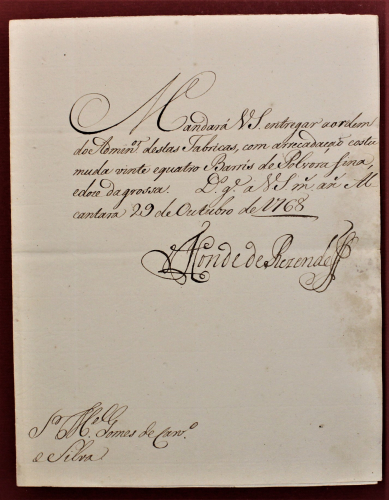 Mandará V S. entregar a ordem
do Almên.º destas Fabricas, com arrecadação costu
mada vinte equatro Barris de Polvora fina,
edoce dagrossa. D.ˢ g.ᵉ a V S m.ˢ añ.ˢ Al
cantara 29 de Outubro de 1768
Conde de Rezende
Sʳ M.ᵉˡ Gomes de Carv.º
e Silva